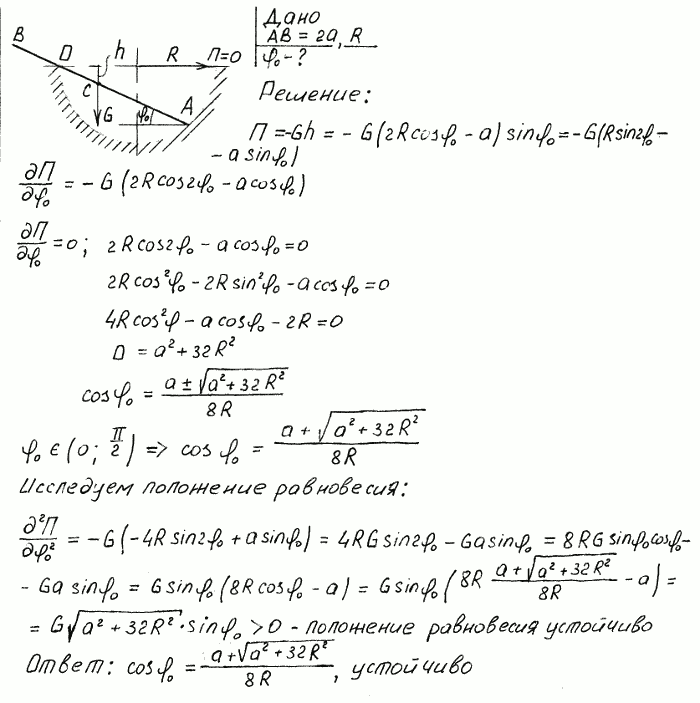 Дано
AB = 2a, R
φ₀ - ?
B
D
h
R
П=0
C
G
φ₀
A
Решение:
П = -Gh = - G(2Rcosφ₀ - a) sinφ₀ = -G(Rsin2φ₀ -
- a sinφ₀)
∂П/∂φ₀ = - G (2Rcos2φ₀ - acosφ₀)
∂П/∂φ₀ = 0; 2Rcos2φ₀ - acosφ₀ = 0
2Rcos²φ₀ - 2Rsin²φ₀ - acosφ₀ = 0
4Rcos²φ - acosφ₀ - 2R = 0
D = a² + 32R²
cosφ₀ = (a ± √(a² + 32R²))/8R
φ₀ ∈ (0; π/2) => cos φ₀ = (a + √(a² + 32R²))/8R
Исследуем положение равновесия:
∂²П/∂φ₀² = -G(-4Rsin2φ₀ + asinφ₀) = 4RGsin2φ₀ - Gasinφ₀ = 8RG sinφ₀cosφ₀ -
- Ga sinφ₀ = Gsinφ₀(8Rcosφ₀ - a) = Gsinφ₀(8R (a + √(a² + 32R²))/8R - a) =
= G√(a² + 32R²) · sinφ₀ > 0 - положение равновесия устойчиво
Ответ: cosφ₀ = (a + √(a² + 32R²))/8R, устойчиво